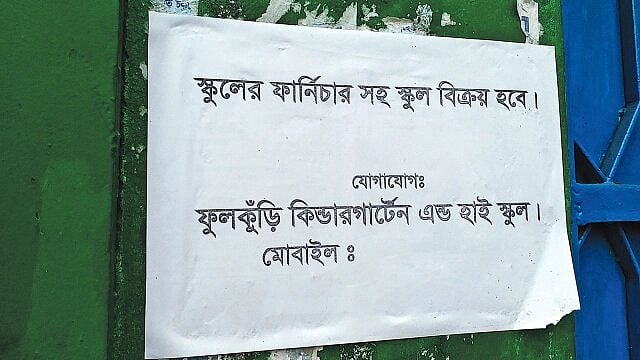 স্কুলের ফার্নিচার সহ স্কুল বিক্রয় হবে।
যোগাযোগঃ
ফুলকুঁড়ি কিন্ডারগার্টেন এন্ড হাই স্কুল।
মোবাইল ঃ